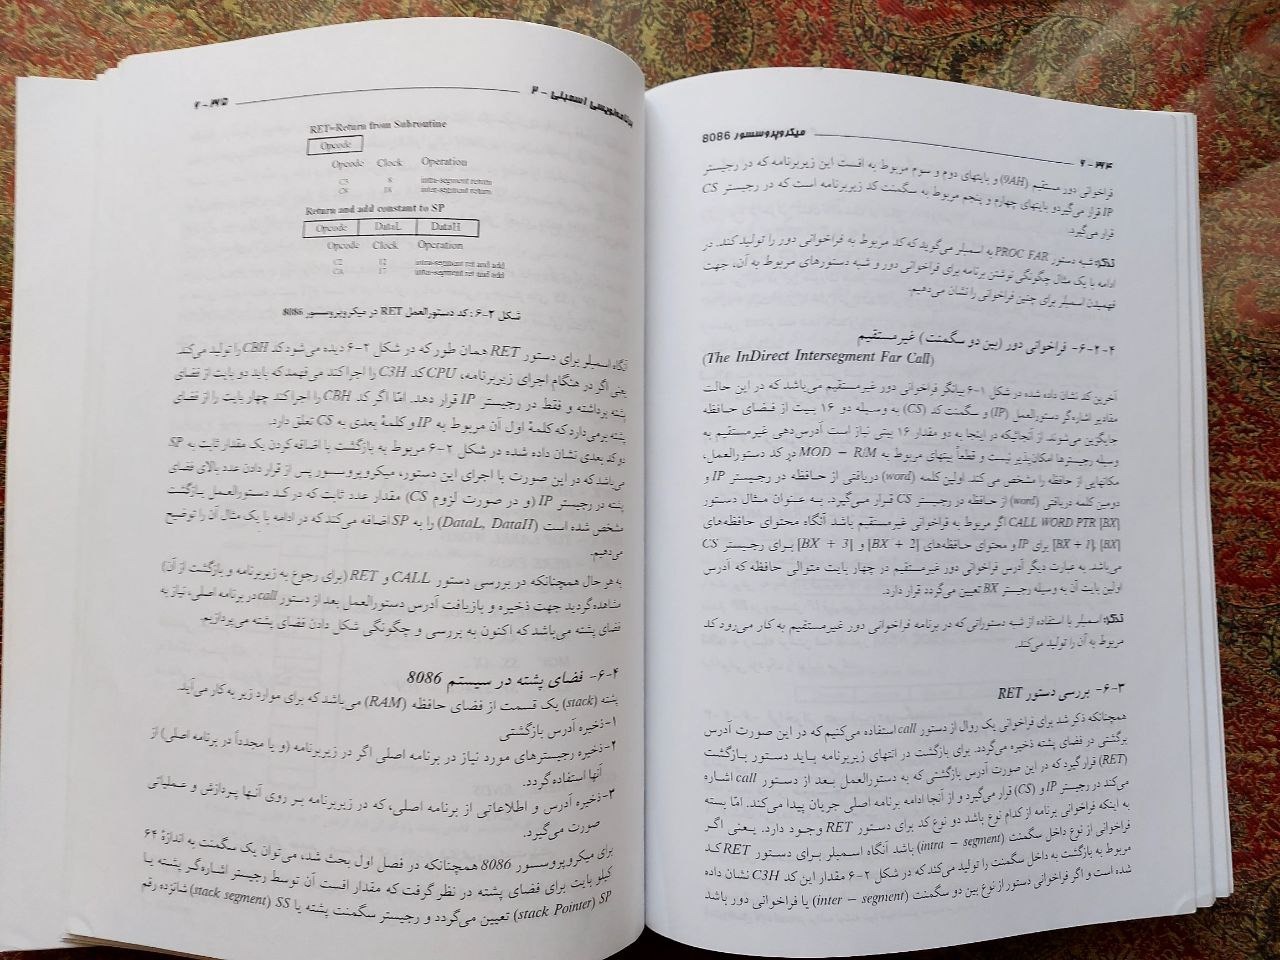 میکروپروسسور 8086
۶-۳۴
فراخوانی دور مستقیم (9AH) و بایتهای دوم و سوم مربوط به افست این زیربرنامه که در رجیستر
IP قرار می‌گیرد و بایتهای چهارم و پنجم مربوط به سگمنت کد زیربرنامه است که در رجیستر CS
قرار می‌گیرد.
تذکر: شبه دستور PROC FAR به اسمبلر می‌گوید که کد مربوط به فراخوانی دور را تولید کند. در
ادامه با یک مثال چگونگی نوشتن برنامه برای فراخوانی دور و شبه دستورهای مربوط به آن، جهت
فهمیدن اسمبلر برای چنین فراخوانی را نشان می‌دهیم.
۶-۲-۴- فراخوانی دور (بین دو سگمنت) غیرمستقیم
(The InDirect Intersegment Far Call)
آخرین کد نشان داده شده در شکل ۱-۶ بیانگر فراخوانی دور غیرمستقیم می‌باشد که در این حالت
مقادیر اشاره‌گر دستورالعمل (IP) و سگمنت کد (CS) به وسیله دو ۱۶ بیت از فضای حافظه
جایگزین می‌شوند. از آنجائیکه در اینجا به دو مقدار ۱۶ بیتی نیاز است آدرس‌دهی غیرمستقیم به
وسیله رجیسترها امکان‌پذیر نیست و قطعاً بیتهای مربوط به MOD – R/M در کد دستورالعمل،
مکانهایی از حافظه را مشخص می‌کند. اولین کلمه (word) دریافتی از حافظه در رجیستر IP و
دومین کلمه دریافتی (word) از حافظه در رجیستر CS قرار می‌گیرد. به عنوان مثال دستور
CALL WORD PTR [BX] اگر مربوط به فراخوانی غیرمستقیم باشد آنگاه محتوای حافظه‌های
[BX + 1], [BX] برای IP و محتوای حافظه‌های [BX + 2] و [BX + 3] برای رجیستر CS
می‌باشد. به عبارت دیگر آدرس فراخوانی دور غیرمستقیم در چهار بایت متوالی حافظه که آدرس
اولین بایت آن به وسیله رجیستر BX تعیین می‌گردد قرار دارد.
تذکر: اسمبلر با استفاده از شبه دستوراتی که در برنامه فراخوانی دور غیرمستقیم به کار می‌رود کد
مربوط به آن را تولید می‌کند.
۶-۳- بررسی دستور RET
همچنانکه ذکر شد برای فراخوانی یک روال از دستور call استفاده می‌کنیم که در این صورت آدرس
برگشتی در فضای پشته ذخیره می‌گردد. برای بازگشت در انتهای زیربرنامه باید دستور بازگشت
(RET) قرار گیرد که در این صورت آدرس بازگشتی که به دستورالعمل بعد از دستور call اشاره
می‌کند در رجیستر IP و (CS) قرار می‌گیرد و از آنجا ادامه برنامه اصلی جریان پیدا می‌کند. امّا بسته
به اینکه فراخوانی برنامه از کدام نوع باشد دو نوع کد برای دستور RET وجود دارد. یعنی اگر
فراخوانی از نوع داخل سگمنت (intra – segment) باشد آنگاه اسمبلر برای دستور RET کد
مربوط به بازگشت به داخل سگمنت را تولید می‌کند که در شکل ۲-۶ مقدار این کد C3H نشان داده
شده است و اگر فراخوانی دستور از نوع بین دو سگمنت (inter – segment) یا فراخوانی دور باشد
برنامه‌نویسی اسمبلی - ۲
۶-۳۵
RET=Return from Subroutine
Opcode
Opcode Clock Operation
C3 8 intra-segment return
CB 18 inter-segment return
Return and add constant to SP
Opcode DataL DataH
Opcode Clock Operation
C2 12 intra-segment ret and add
CA 17 inter-segment ret and add
شکل ۲-۶ : کد دستورالعمل RET در میکروپروسسور 8086
آنگاه اسمبلر برای دستور RET همان طور که در شکل ۲-۶ دیده می‌شود کد CBH را تولید می‌کند.
یعنی اگر در هنگام اجرای زیربرنامه، CPU کد C3H را اجرا کند می‌فهمد که باید دو بایت از فضای
پشته برداشته و فقط در رجیستر IP قرار دهد. امّا اگر کد CBH را اجرا کند چهار بایت را از فضای
پشته برمی‌دارد که کلمهٔ اول آن مربوط به IP و کلمهٔ بعدی به CS تعلق دارد.
دو کد بعدی نشان داده شده در شکل ۲-۶ مربوط به بازگشت با اضافه کردن یک مقدار ثابت به SP
می‌باشد که در این صورت با اجرای این دستور، میکروپروسسور پس از قرار دادن عدد بالای فضای
پشته در رجیستر IP (و در صورت لزوم CS) مقدار عدد ثابت که در کد دستورالعمل بازگشت
مشخص شده است (DataL, DataH) را به SP اضافه می‌کند که در ادامه با یک مثال آن را توضیح
می‌دهیم.
به هر حال همچنانکه در بررسی دستور CALL و RET (برای رجوع به زیربرنامه و بازگشت از آن)
مشاهده گردید جهت ذخیره و بازیافت آدرس دستورالعمل بعد از دستور call در برنامه اصلی، نیاز به
فضای پشته می‌باشد که اکنون به بررسی و چگونگی شکل دادن فضای پشته می‌پردازیم.
۶-۴- فضای پشته در سیستم 8086
پشته (stack) یک قسمت از فضای حافظه (RAM) می‌باشد که برای موارد زیر به کار می‌آید.
۱-ذخیره آدرس بازگشتی
۲-ذخیره رجیسترهای مورد نیاز در برنامه اصلی اگر در زیربرنامه (و یا مجدداً در برنامه اصلی) از
آنها استفاده گردد.
۳-ذخیره آدرس و اطلاعاتی از برنامه اصلی، که در زیربرنامه بر روی آنها پردازش و عملیاتی
صورت می‌گیرد.
برای میکروپروسسور 8086 همچنانکه در فصل اول بحث شد، می‌توان یک سگمنت به اندازهٔ ۶۴
کیلو بایت برای فضای پشته در نظر گرفت که مقدار افست آن توسط رجیستر اشاره‌گر پشته یا
SP (stack Pointer) تعیین می‌گردد و رجیستر سگمنت پشته یا SS (stack segment) شانزده رقم